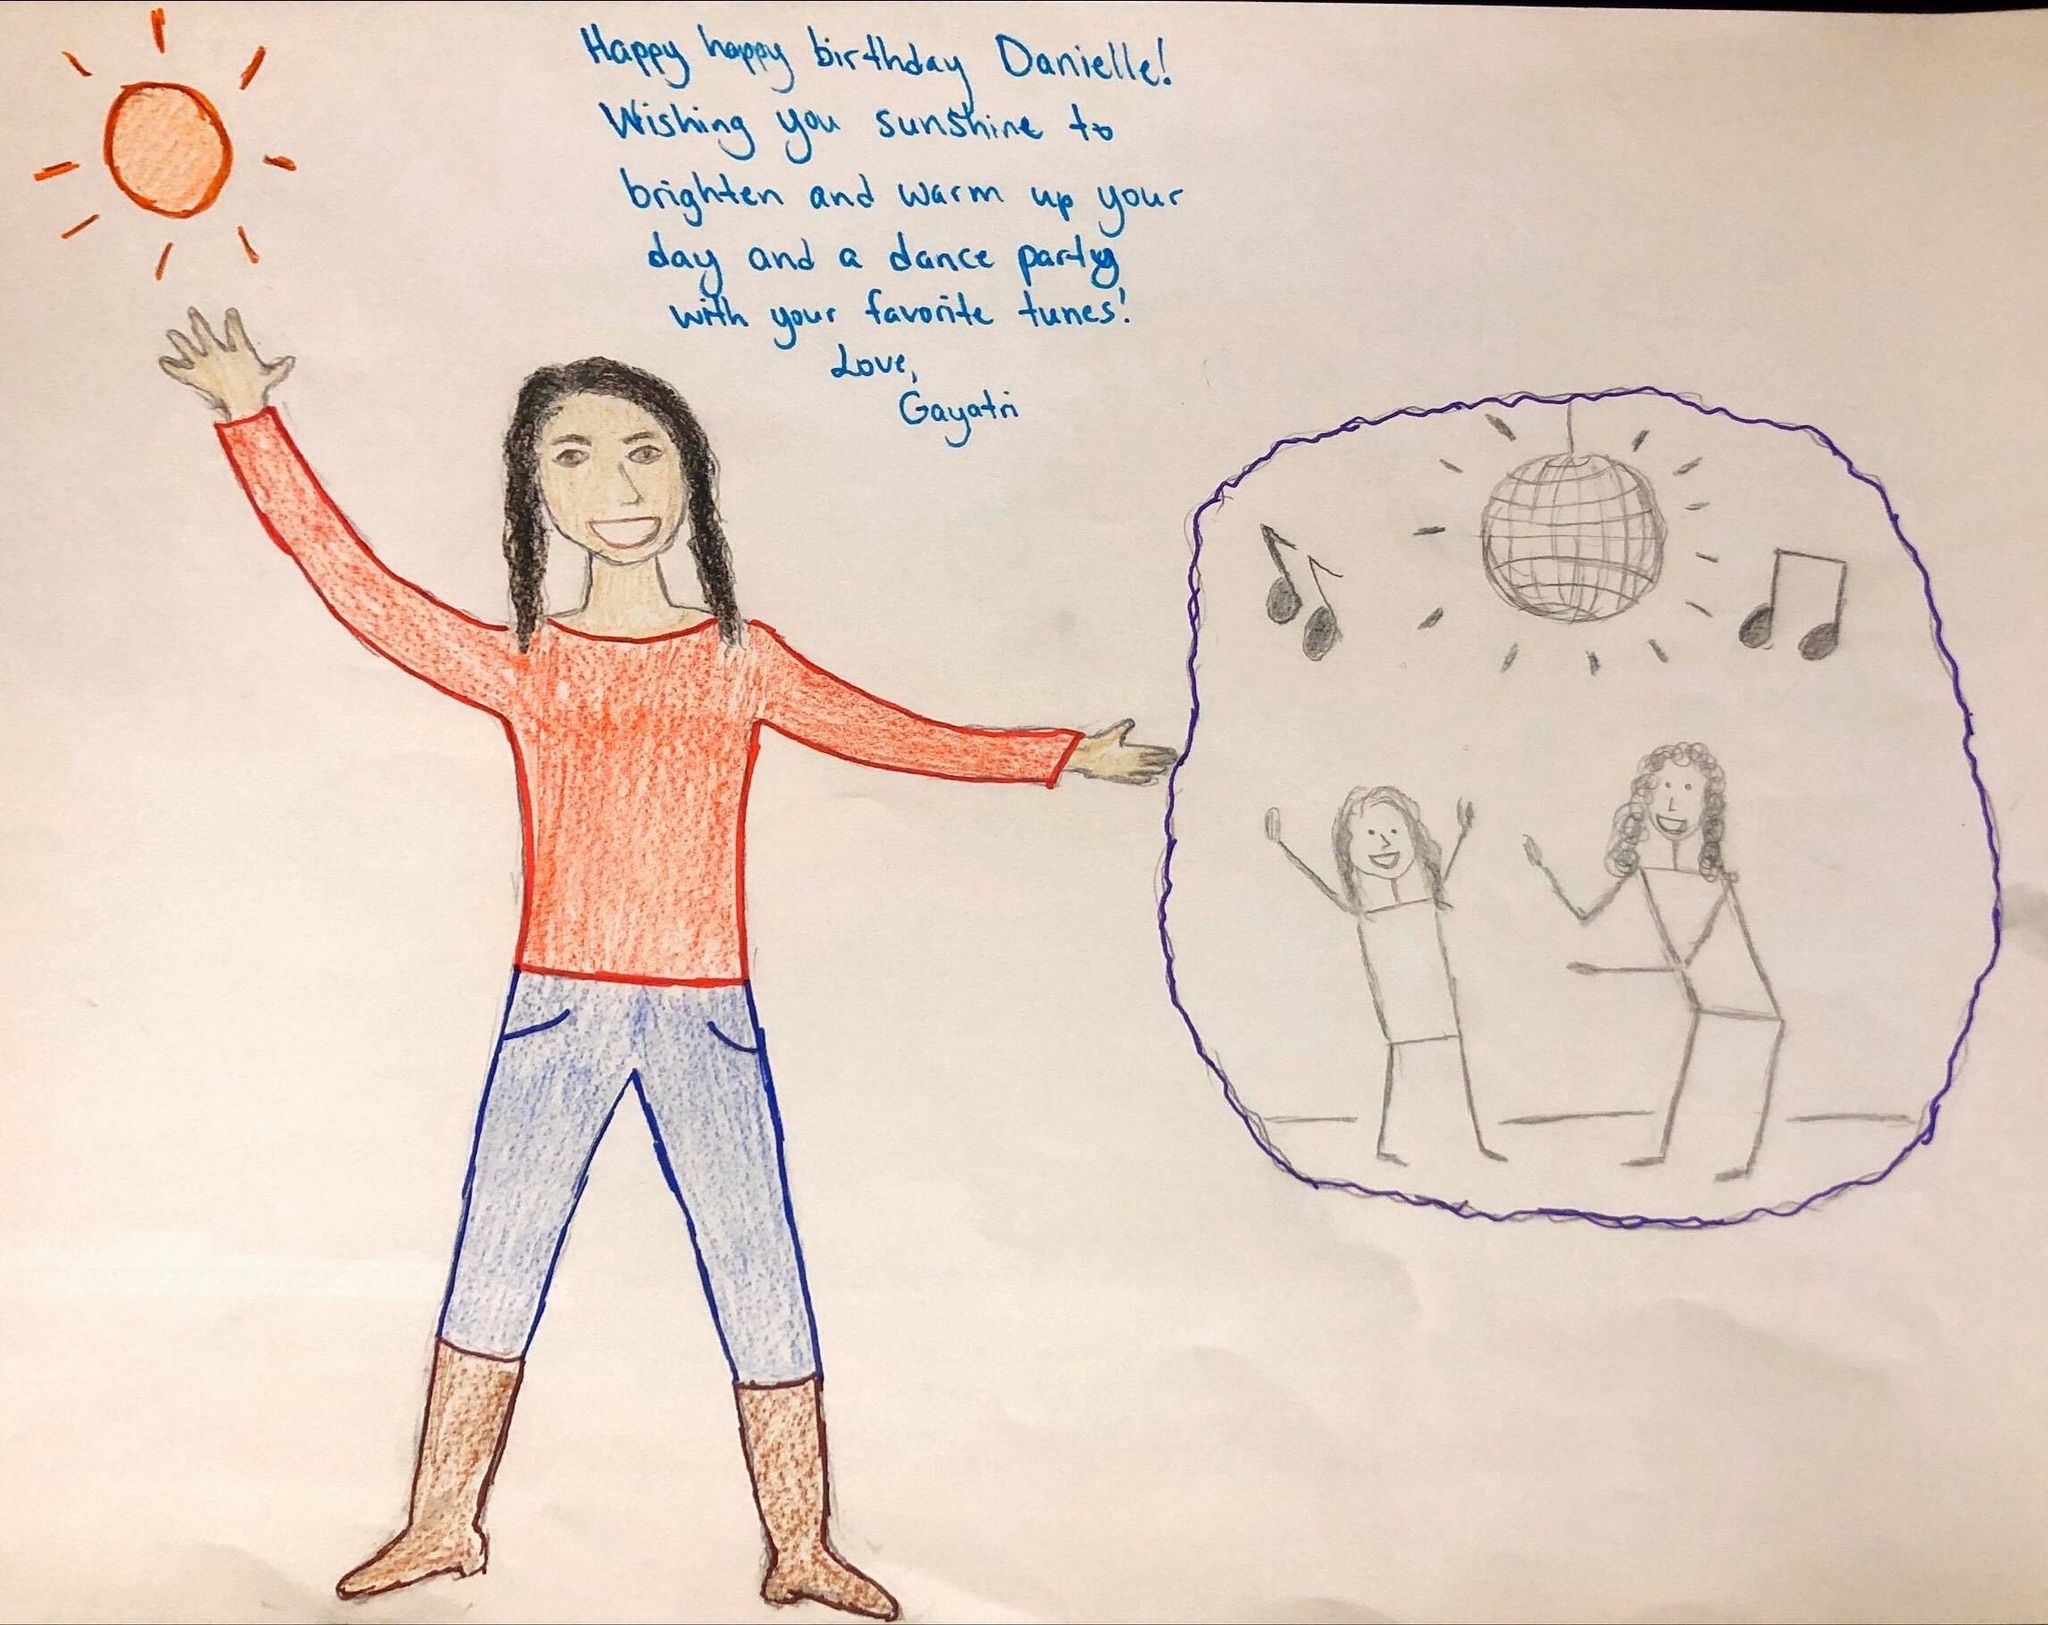 Happy happy birthday Danielle!
Wishing you sunshine to
brighten and warm up your
day and a dance party
with your favorite tunes!
Love,
Gayatri